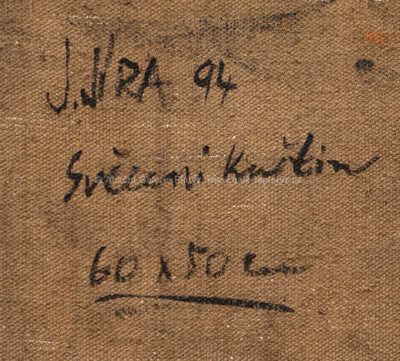 J. JÍRA 94
Svěcení Květin
60 x 50 cm